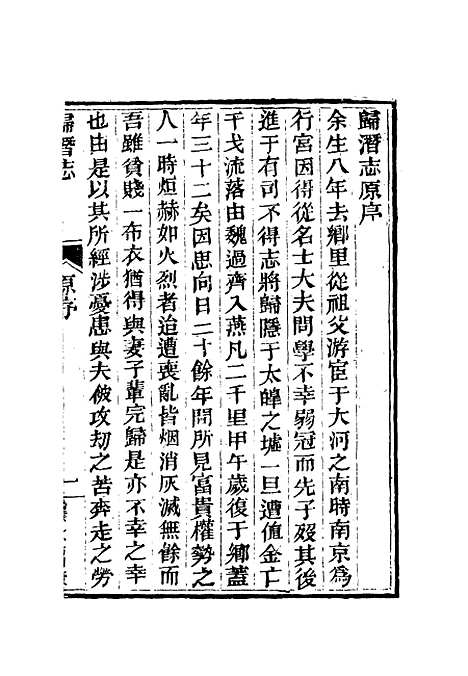 歸潛志原序
余生八年去鄉里從祖父游宦于大河之南時南京爲
行宮因得從名士大夫問學不幸弱冠而先子歿其後
進于有司不得志將歸隱于太皥之墟一旦遭值金亡
干戈流落由魏過齊入燕凡二千里甲午歲復于鄉蓋
年三十二矣因思向日二十餘年間所見富貴權勢之
人一時烜赫如火烈者迨遭喪亂皆烟消灰滅無餘而
吾雖貧賤一布衣猶得與妻子輩完歸是亦不幸之幸
也由是以其所經涉憂患與夫被攻劫之苦奔走之勞
歸潛志
原序
一